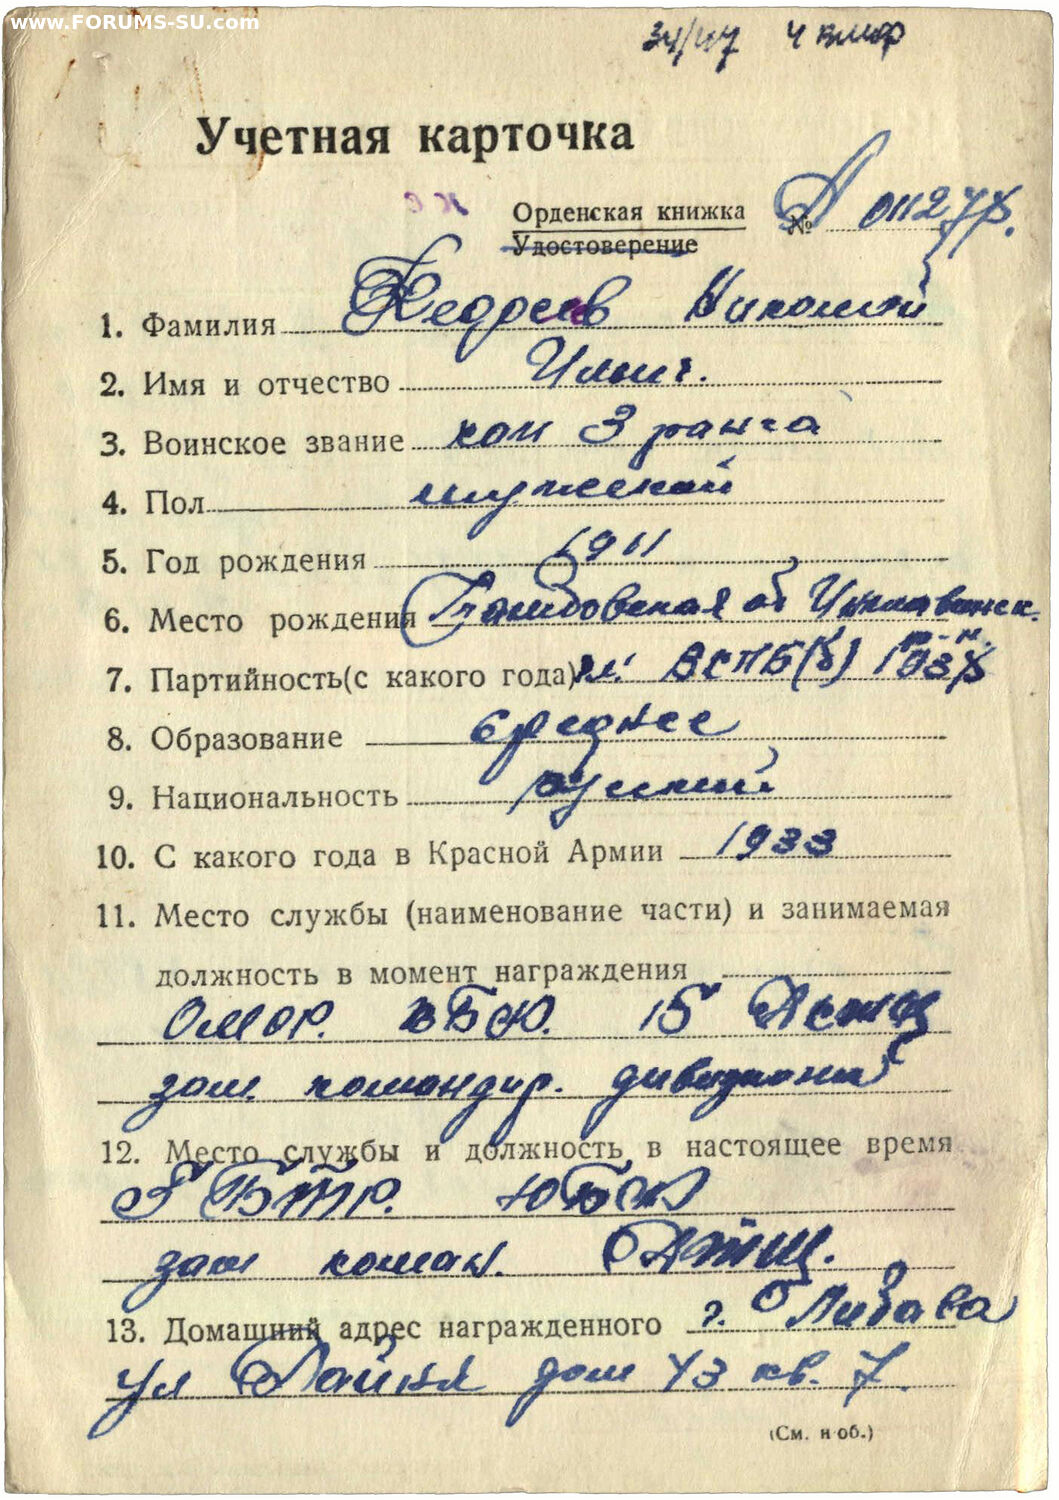 www.FORUMS-SU.com
Учетная карточка
Орденская книжка
Удостоверение
№ А
1. Фамилия Николай
2. Имя и отчество Ильич.
3. Воинское звание кап 3 ранга
4. Пол мужской
5. Год рождения 1911
6. Место рождения Тамбовская об
7. Партийность(с какого года) чл. 1938
8. Образование среднее
9. Национальность руский
10. С какого года в Красной Армии 1933
11. Место службы (наименование части) и занимаемая
должность в момент награждения
ОМОР. КБФ. 15
зам. командир. дивизиона
12. Место службы и должность в настоящее время
ЮБФ
зам коман.
13. Домашний адрес награжденного г. Либава
ул Райня дом 43 кв. 7
(См. н об.)